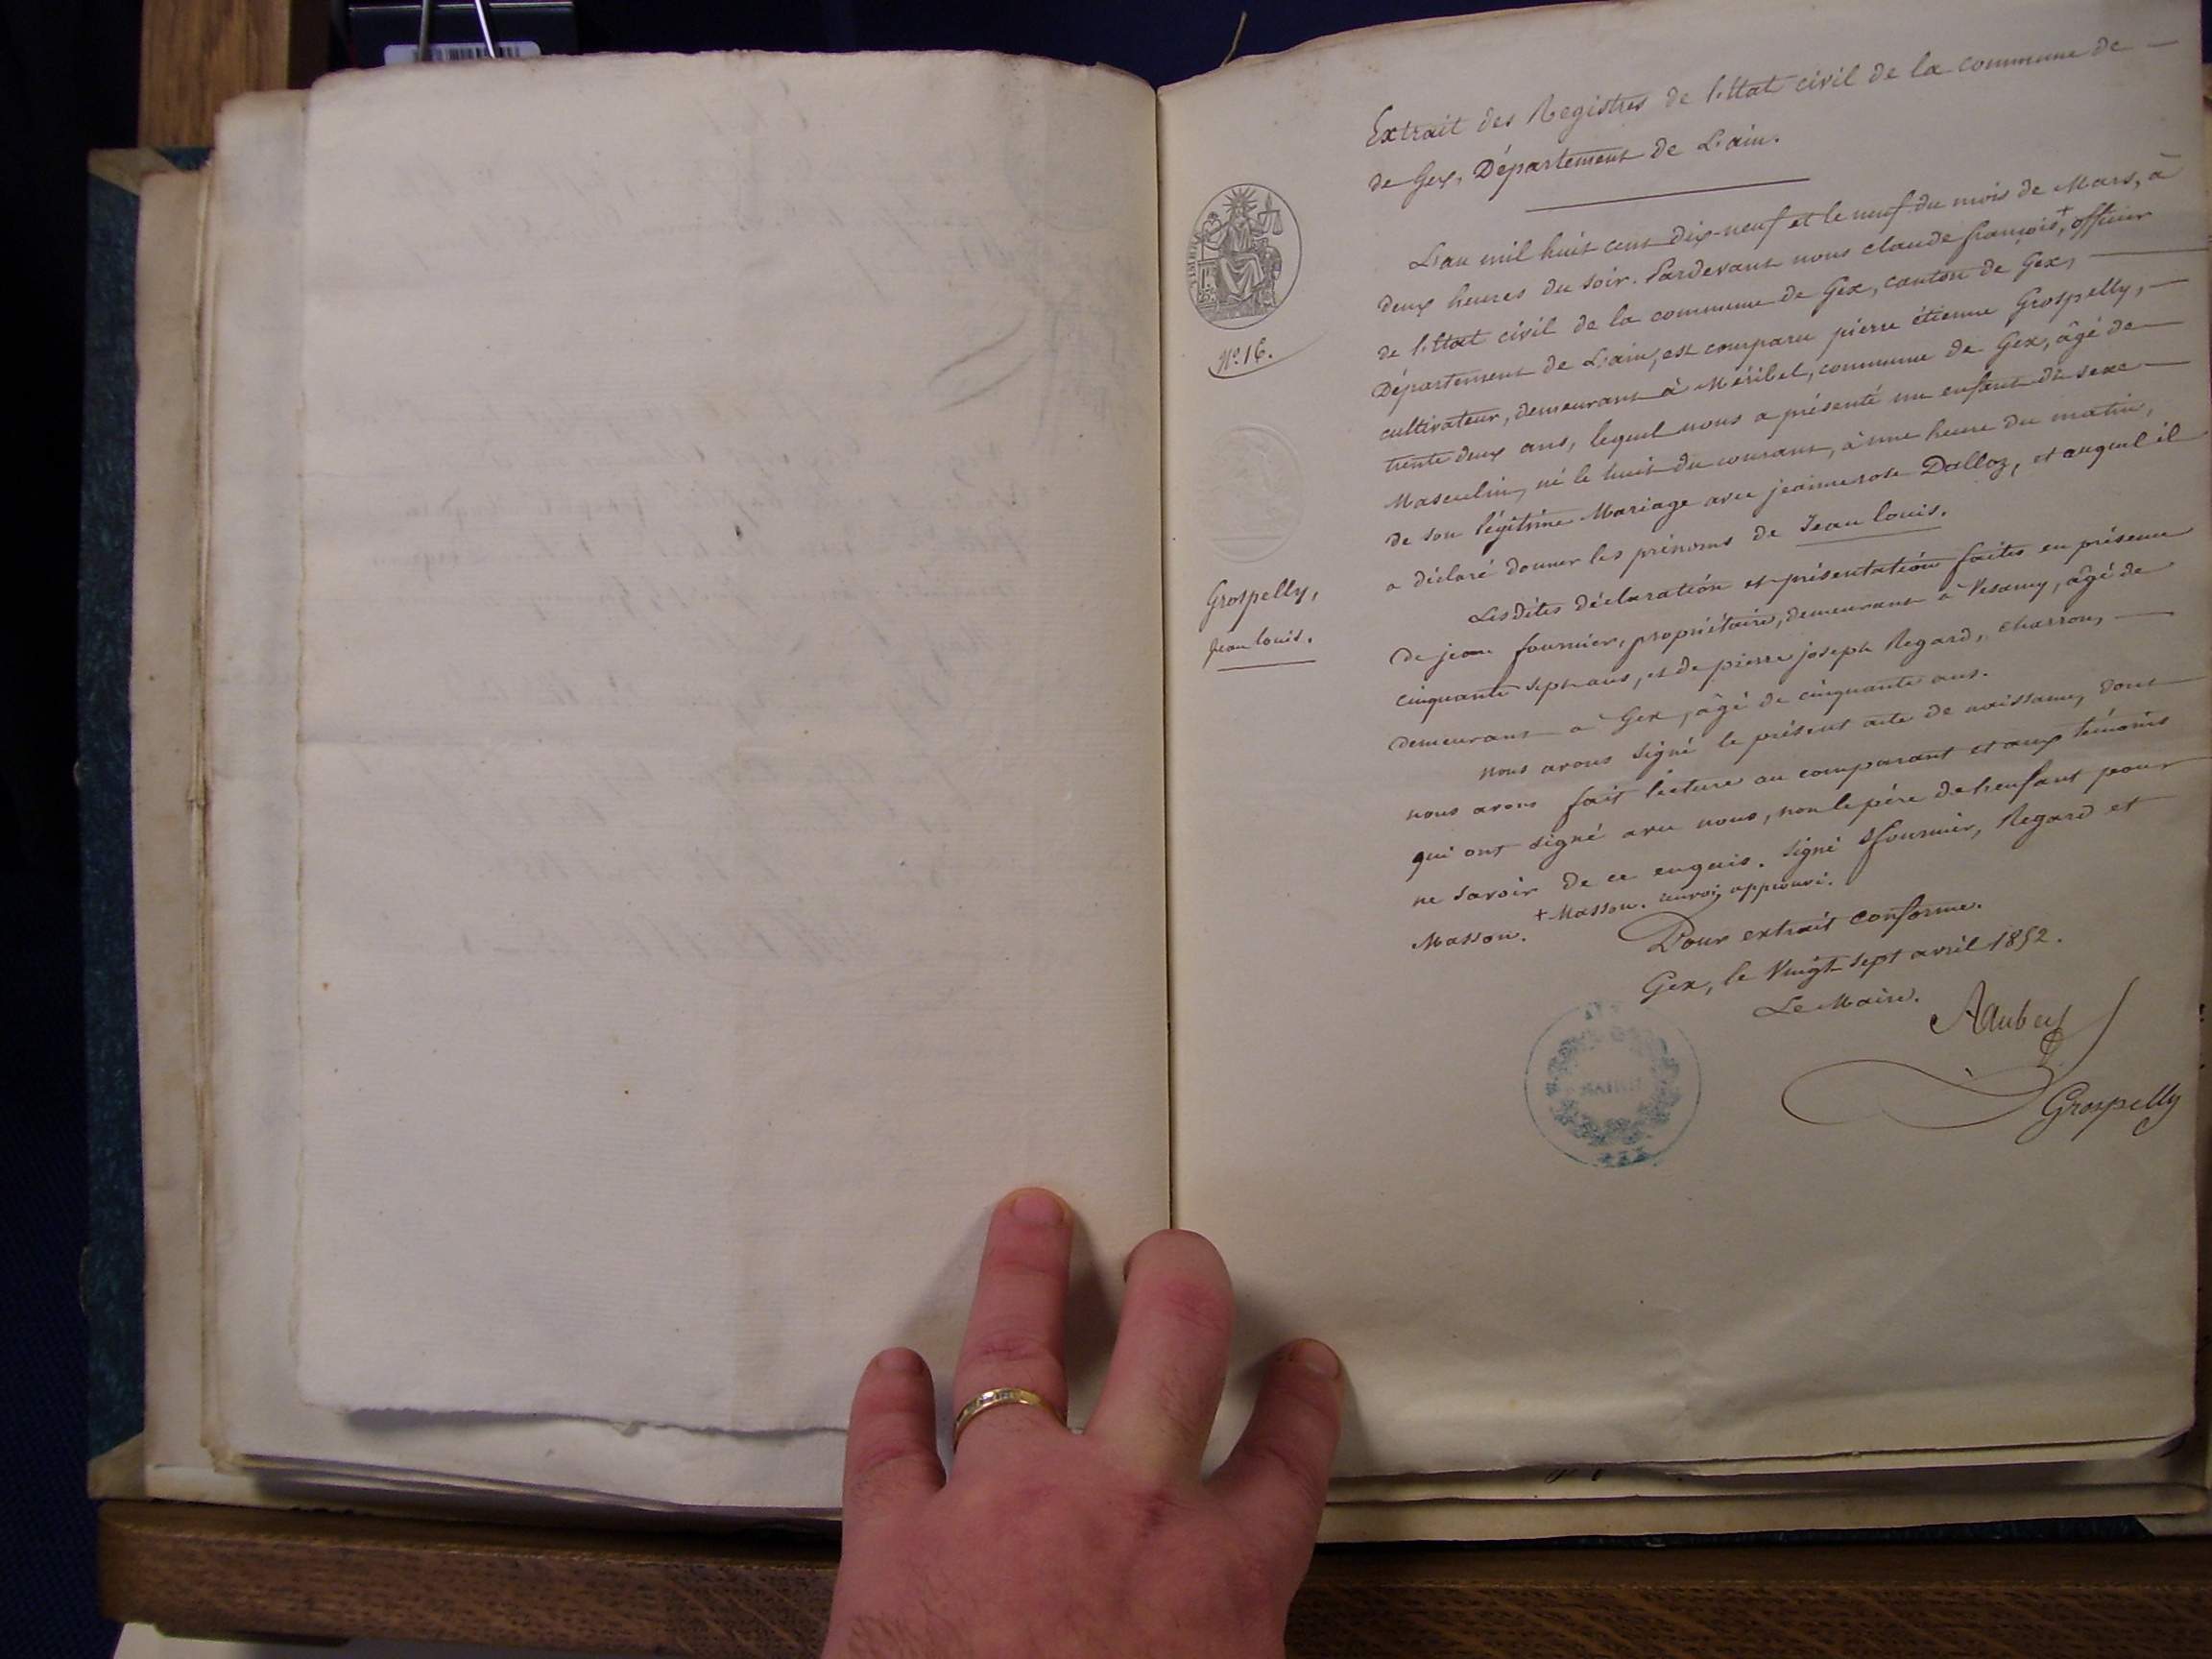 Extrait des Registres de l'Etat civil de la commune de
de Gex, Département de L'ain.
L'an mil huit cent dix-neuf et le neuf du mois de Mars, à
deux heures du soir. Pardevant nous claude françois +, officier
de l'Etat civil de la commune de Gex, canton de Gex,
Département de L'ain, est comparu pierre étienne Grospelly,
cultivateur, demeurant à Méribel, commune de Gex, âgé de
trente deux ans, lequel nous a présenté un enfant du sexe
Masculin, né le huit du courant, à une heure du matin,
de son légitime Mariage avec jeanne rose Dalloz, et auquel il
a déclaré donner les prénoms de Jean louis.
Lesdites déclaration et présentation faites en présence
de jean fournier, propriétaire, demeurant à Vesancy, âgé de
cinquante sept ans, et de pierre joseph Regard, charron,
demeurant à Gex, âgé de cinquante ans.
nous avons signé le présent acte de naissance, dont
nous avons fait lecture au comparant et aux témoins
qui ont signé avec nous, non le père de l'enfant pour
ne savoir de ce enquis. Signé fournier, Regard et
Masson. + Masson. renvoi approuvé.
Pour extrait conforme.
Gex, le Vingt-sept avril 1852.
Le Maire.
Grospelly
TIMBRE
N° 16.
Grospelly,
Jean louis.
MAIRIE
GEX